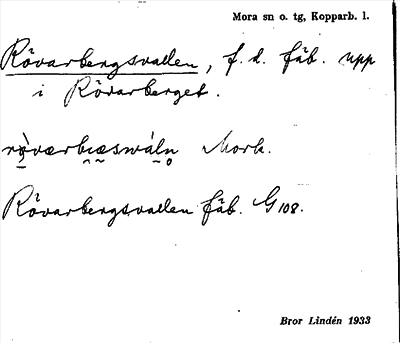 Mora sn o. tg, Kopparb. l.
Rövarbergsvallen, f. d. fäb. upp
i Rövarberget.
rò̱værbı̯æ̰swáln̥ Mork.
Rövarbergsvallen fäb. G108.
Bror Lindén 1933